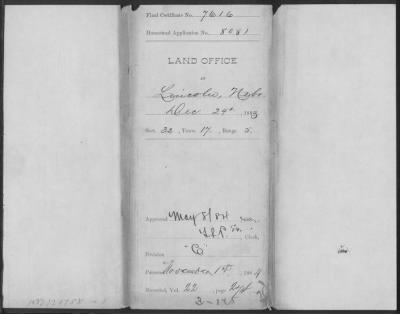 Final Certificate No. 7616
Homestead Application No. 8081
LAND OFFICE
Lincoln, Nebr
Dec 24th, 1883
Sect. 32, Town. 17, Range 5.
Approved May 8/84
Clerk,
Division "C"
Patented November 1st, 188
Recorded, Vol. 22, page